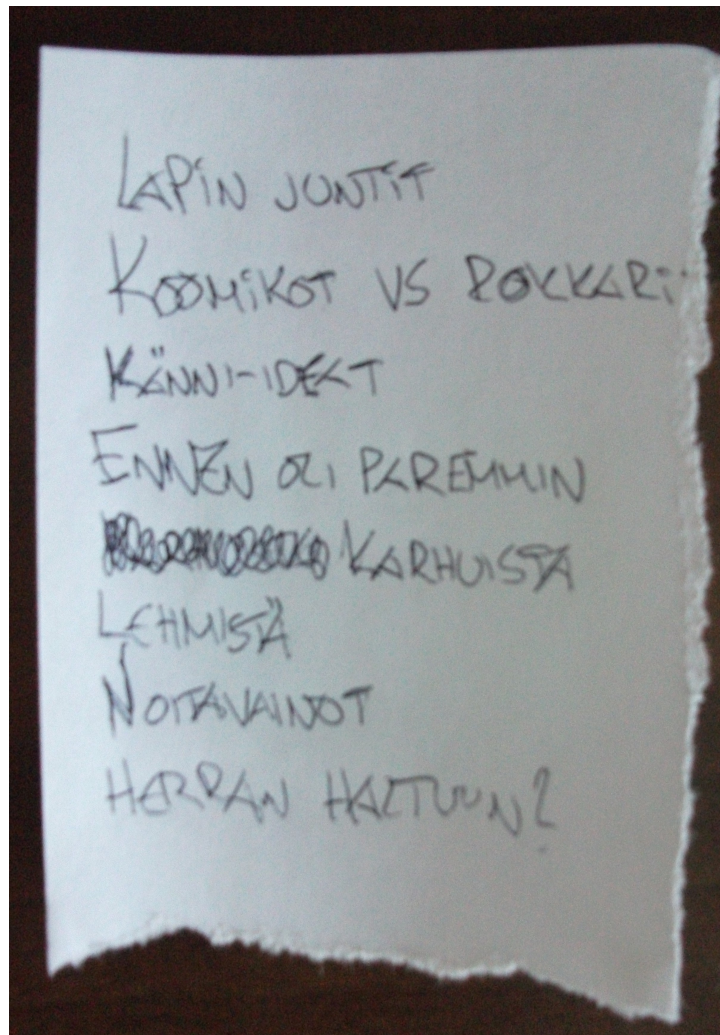 LAPIN JUNTIT
KOOMIKOT VS ROKKARI
KÄNNI-IDEAT
ENNEN OLI PAREMMIN
KARHUISTA
LEHMISTÄ
NOITAVAINOT
HERRAN HALTUUN?